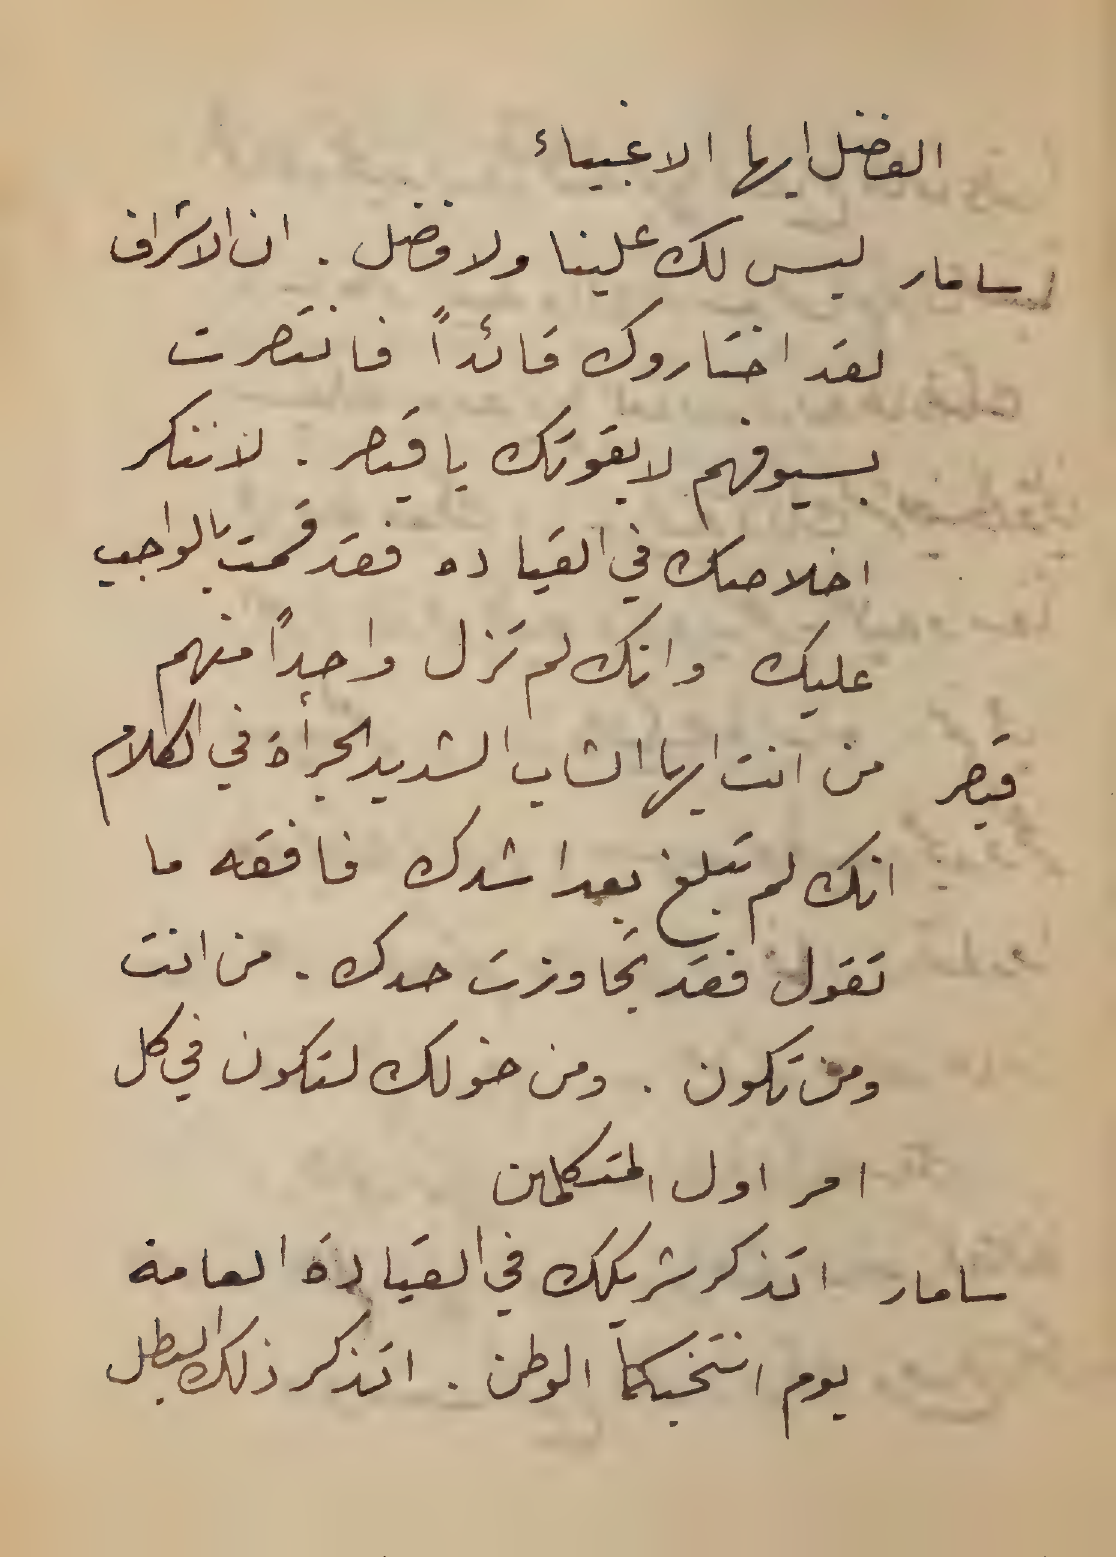 الفضل ايها الاغبياء
سامار ليس لك علينا ولا فضل . ان الاشراف
لقد اختاروك قائداً فانتصرت
بسيوفهم لا بقوتك يا قيصر . لا ننكر
اخلاصك في القياده فقد قمت بالواجب
عليك وانك لم تزل واحداً منهم
قيصر من انت ايها الشاب الشديد الجرأة في الكلام
انك لم تبلغ بعد اشدك فافقه ما
تقول فقد تجاوزت حدك . من انت
ومن تكون . ومن خولك لتكون في كل
امر اول المتكلمين
سامار اتذكر شريكك في القيادة العامة
يوم انتخبكما الوطن . اتذكر ذلك البطل